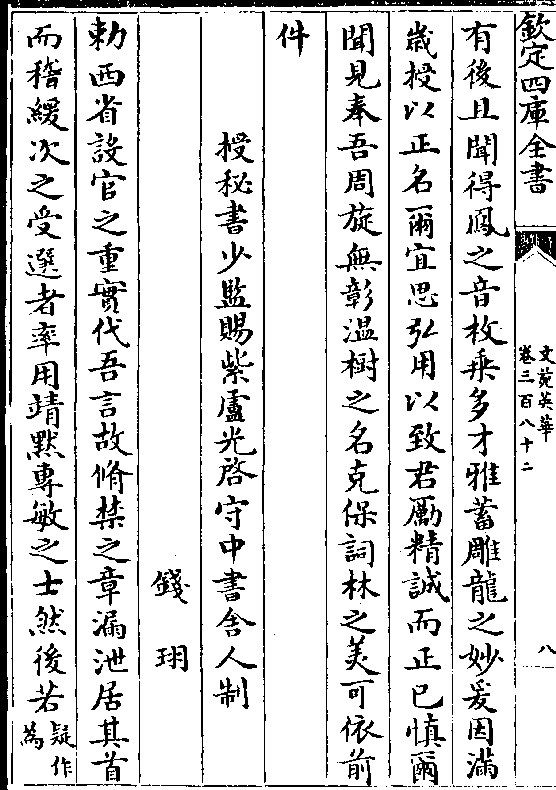 欽定四庫全書
文苑英華
卷三百八十二
八
有後且聞得鳳之音枚乗多才雅蓄雕龍之妙爰因滿
歲授以正名爾宜思弘用以致君勵精誠而正已慎爾
聞見奉吾周旋無彰溫樹之名克保詞林之美可依前
件
授秘書少監賜紫盧光啓守中書舎人制
錢珝
勅西省設官之重實代吾言故脩禁之章漏泄居其首
而稽緩次之受選者率用靖黙專敏之士然後若疑作為